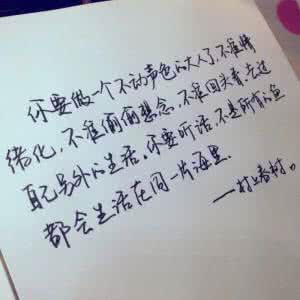 你要做一个不动声色的大人了,不准情
绪化,不准偷偷想念,不准回头看,去过
自己另外的生活。你要听话,不是所有的鱼
都会生活在同一片海里.
——村上春树。